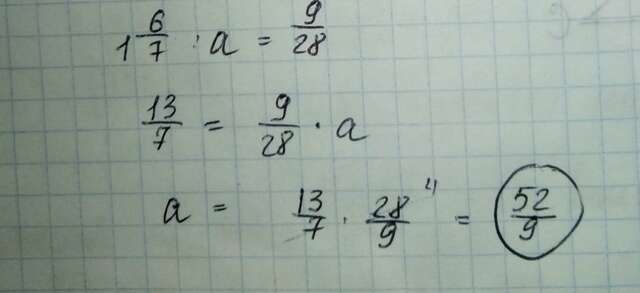 1 6/7 : a = 9/28
13/7 = 9/28 · a
a = 13/7 · 28/9 4 = 52/9